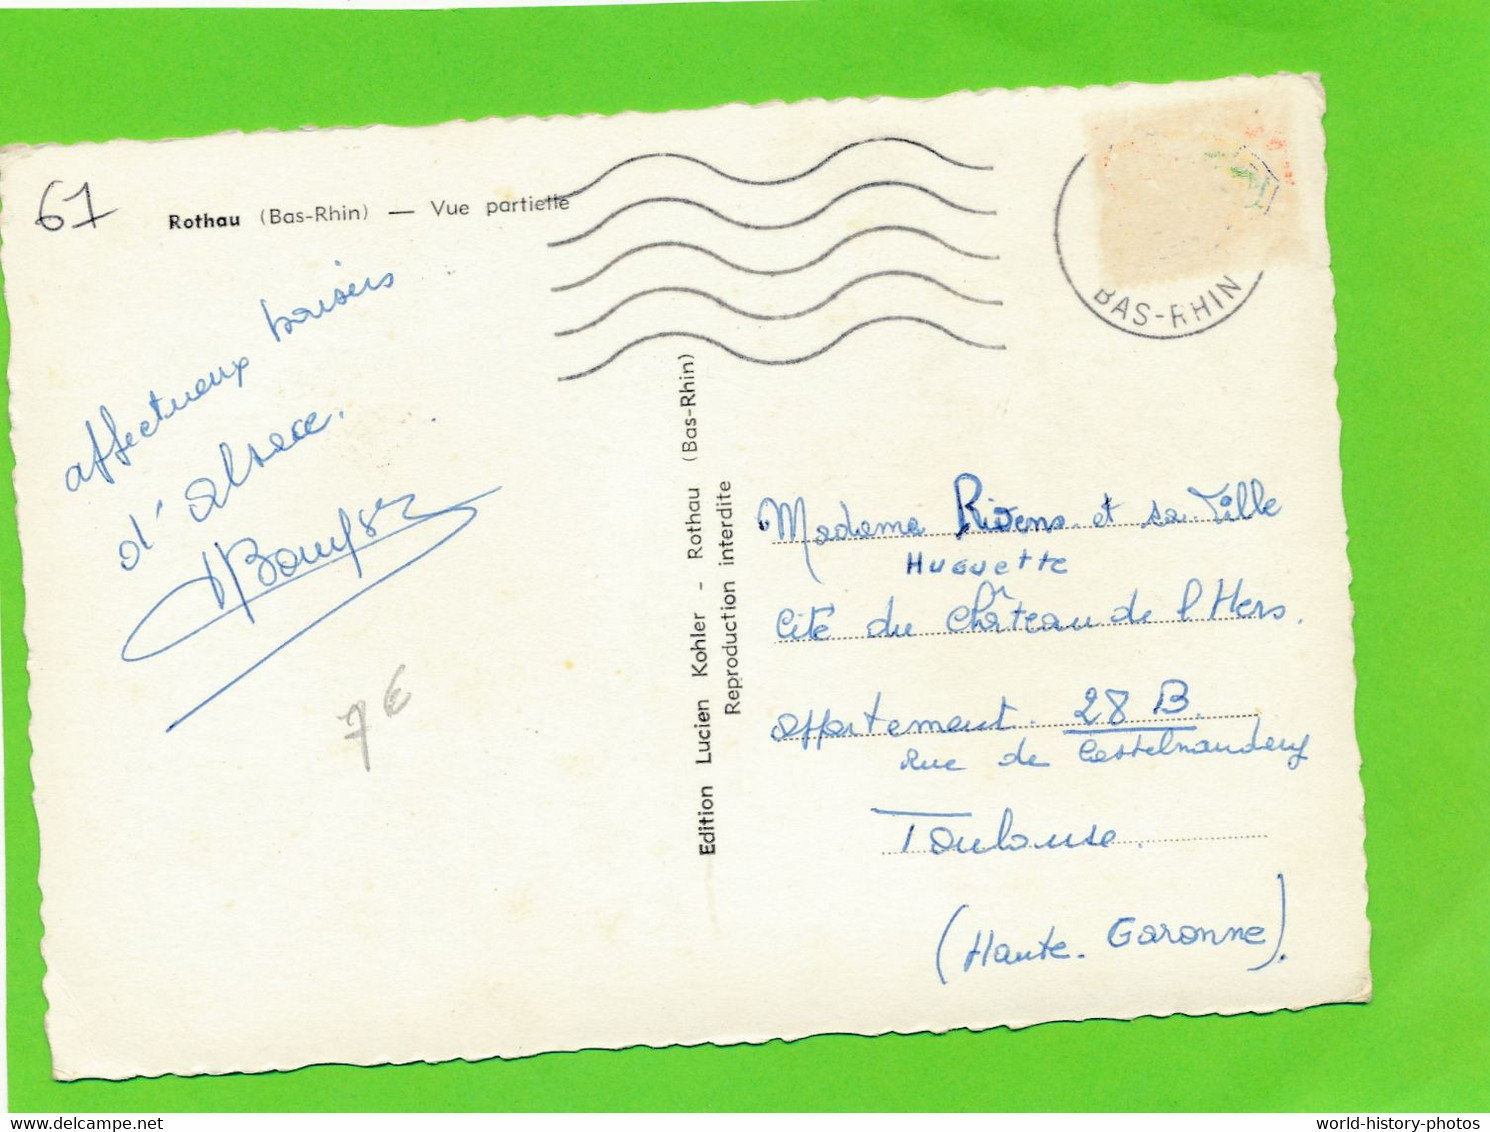 61
Rothau (Bas-Rhin) — Vue partielle
affectueux baisers
d'Alsace.
7€
BAS-RHIN
Edition Lucien Kohler - Rothau (Bas-Rhin)
Reproduction interdite
Madame Rivens et sa fille
Huguette
Cité du Château de l'Hers.
appartement. 28 B.
Rue de Castelnaudary
Toulouse.
(Haute-Garonne).
world-history-photos